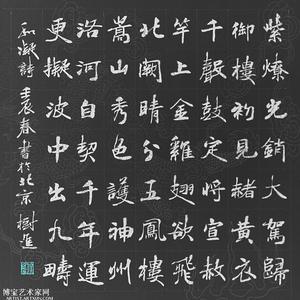 紫燎光銷大駕歸
御樓初見赭黃衣
千聲鼓定將宣赦
竿上金雞翅欲飛
北闕晴分五鳳樓
嵩山秀色護神州
洛河自契千年運
更擬波中出九疇
和凝詩 壬辰春書於北京 樹
博宝艺术家网
ARTIST.ARTXUN.COM